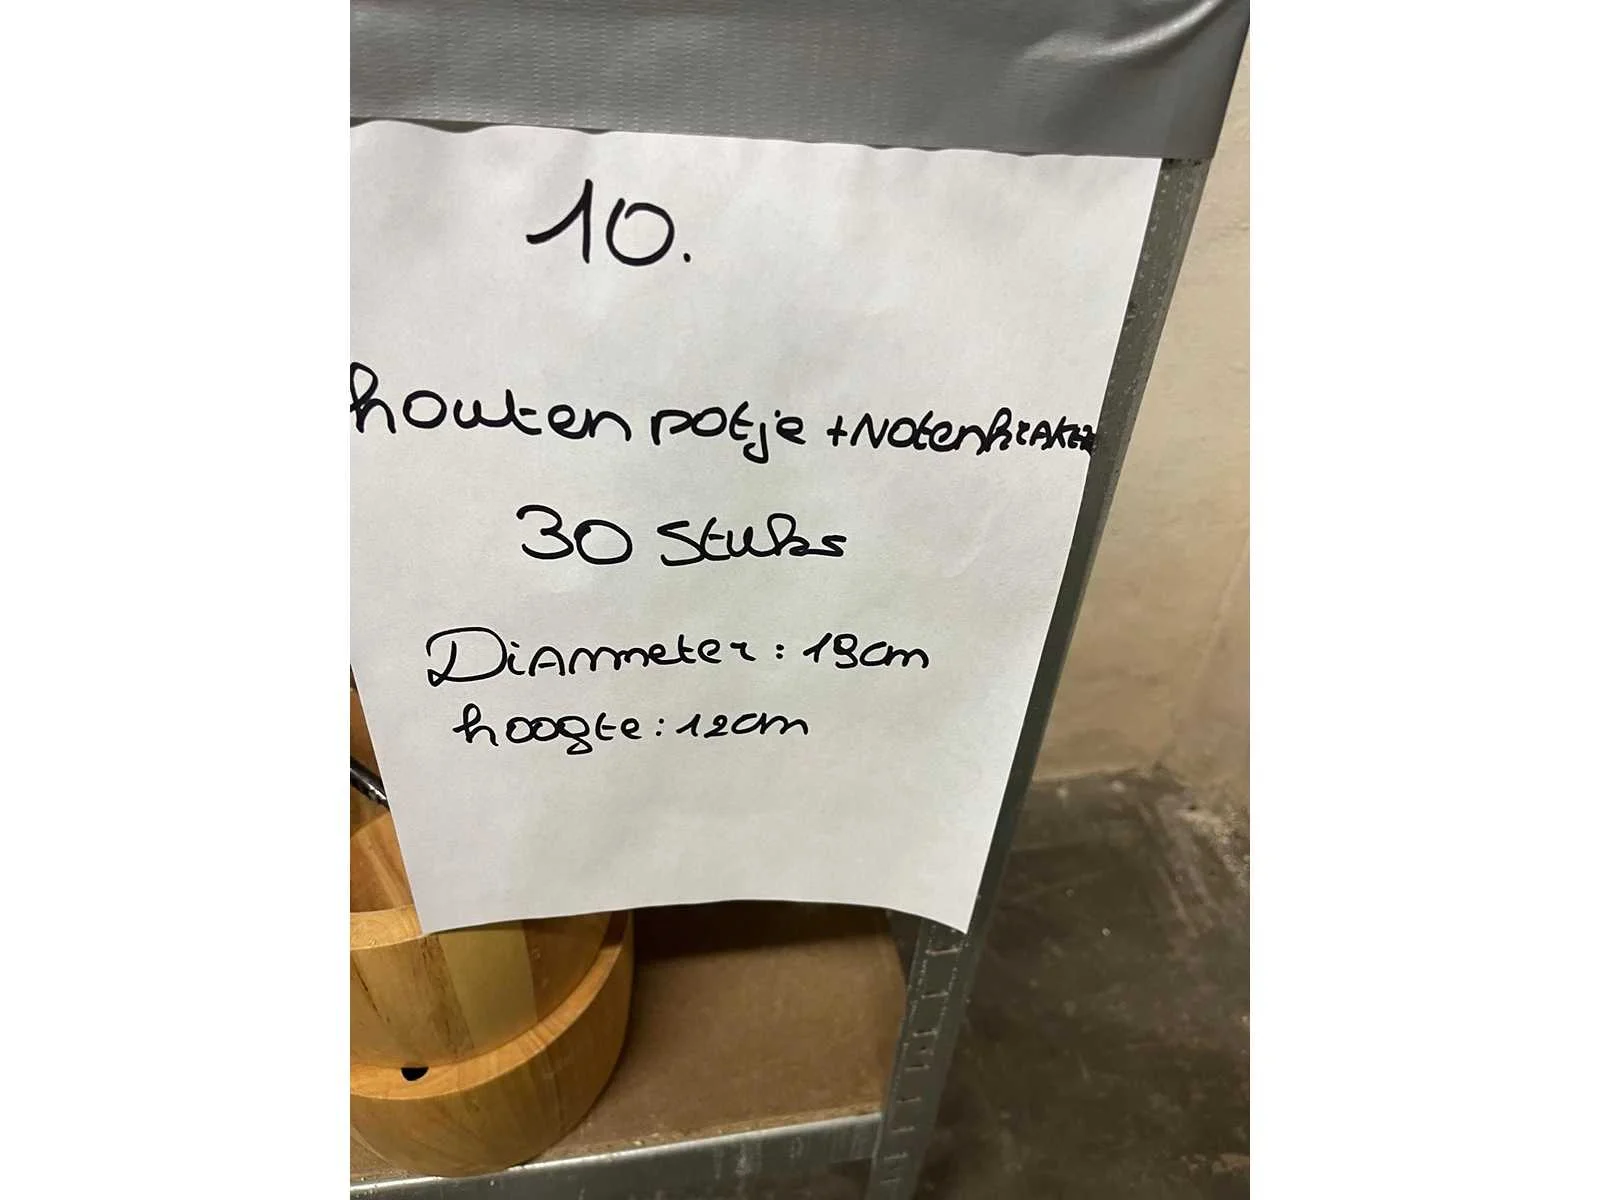 10.
houten potje + Notenkraker
30 stuks
Diammeter: 19cm
hoogte: 12cm